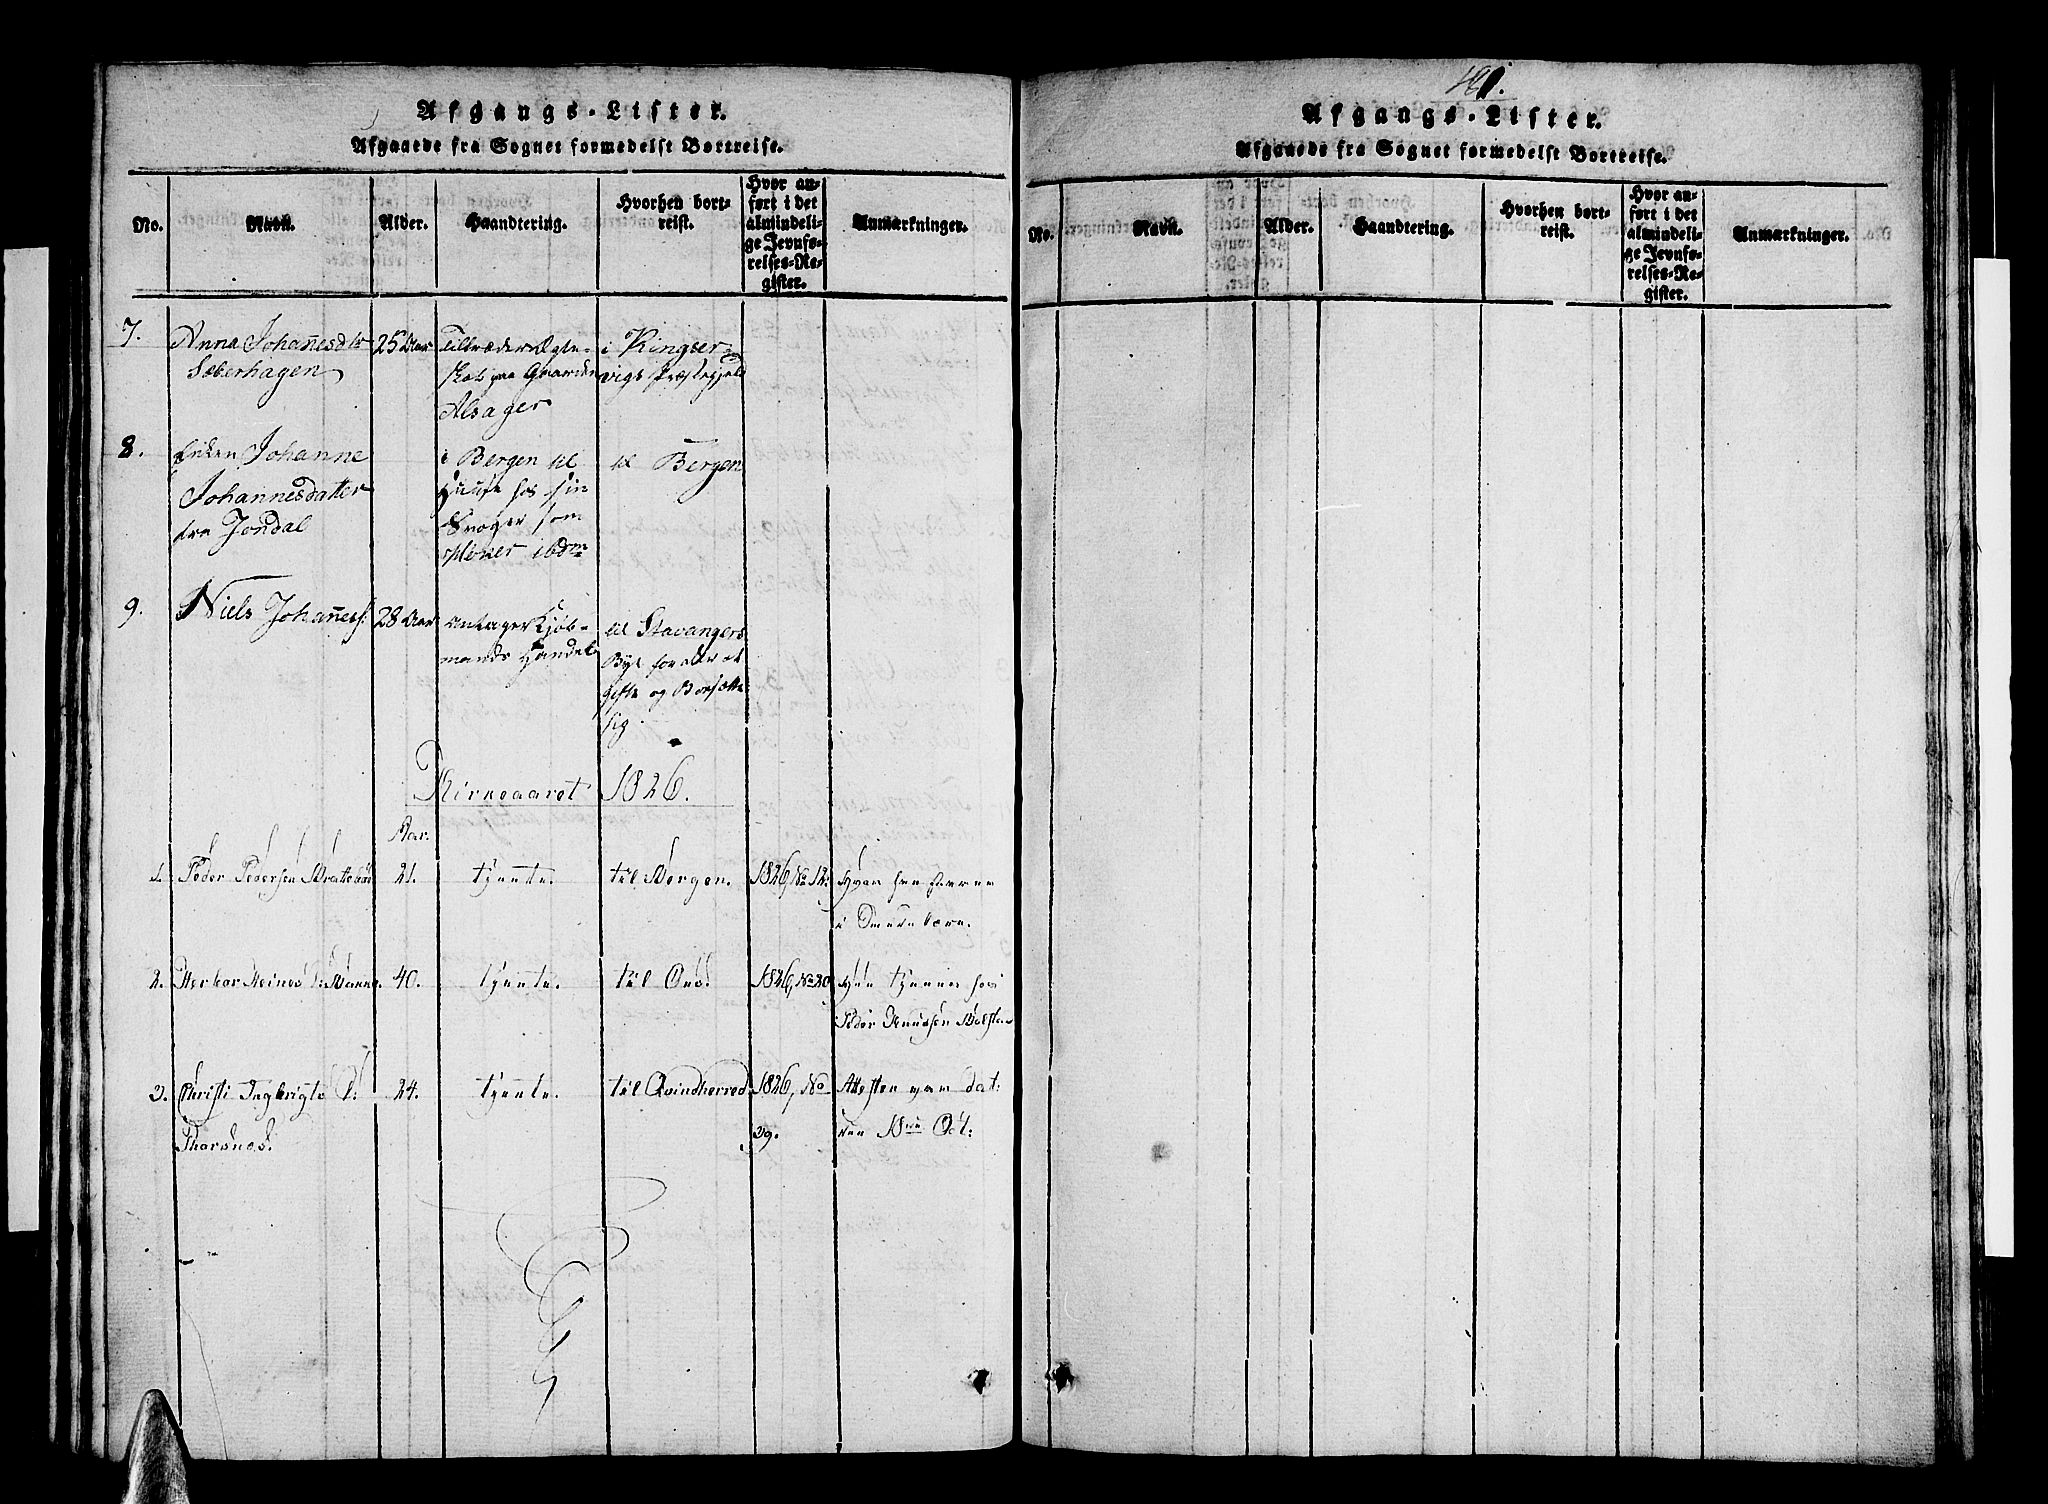 Afgangs-Lister.
Afgaaede fra Sognet formedelst Bortreise.
No.
Navn.
Alder.
Haandtering.
Hvorhen bort-
reist.
Hvor an-
ført i det
almindeli-
ge Jevnfø-
relses-Re-
gister.
Anmærkninger.
7.
Anna Johannesdtr
25 Aar
i Kingser-
vigs Præstegjeld
Alsager
8.
Enken Johanne
Johannesdatter
fra Jondal
i Bergen til
Huuse hos sin
Svoger som
til Bergen
9.
Niels Johanness:
28 Aar
antager Kjøb-
mands Handel
til Stavangers
Bye for der at
gifte og Bosætte
sig.
Kirkeaaret 1826.
Aar.
1.
Peder Pedersen
21.
tjente.
til Bergen.
1826, No 12.
2.
40.
tjente.
1826, No 20
Hun tjener hos
Peder Knudsen
3.
Christi Ingbrigts D:
Thorsnes.
24.
tjente.
til Qvindherred
1826, No
39.
Attesten var dat:
den 18de Oct:
101.
Afgangs-Lister.
Afgaaede fra Sognet formedelst Bortreise.
No.
Navn.
Alder.
Haandtering.
Hvorhen bort-
reist.
Hvor an-
ført i det
almindeli-
ge Jevnfø-
relses-Re-
gister.
Anmærkninger.